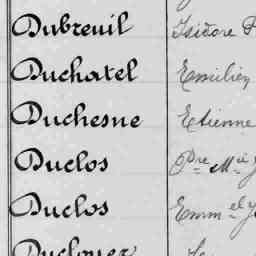 Dubreuil Isidore
Duchatel Emilien
Duchesne Etienne
Duclos Pre Mie
Duclos Emmel